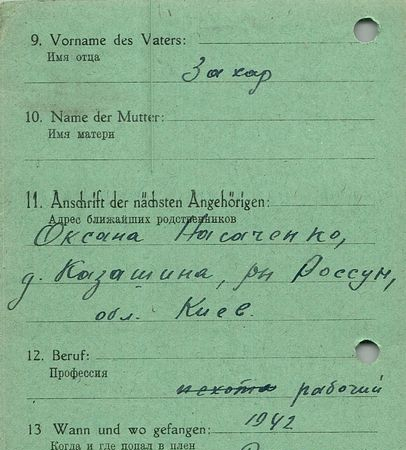 9. Vorname des Vaters:
Имя отца
Захар
10. Name der Mutter:
Имя матери
11. Anschrift der nächsten Angehörigen:
Адрес ближайших родственников
Оксана Насаченко,
д. Казашина, рн Россум,
обл. Киев.
12. Beruf:
Профессия
пехота рабочий
13 Wann und wo gefangen: 1942
Когда и где попал в плен